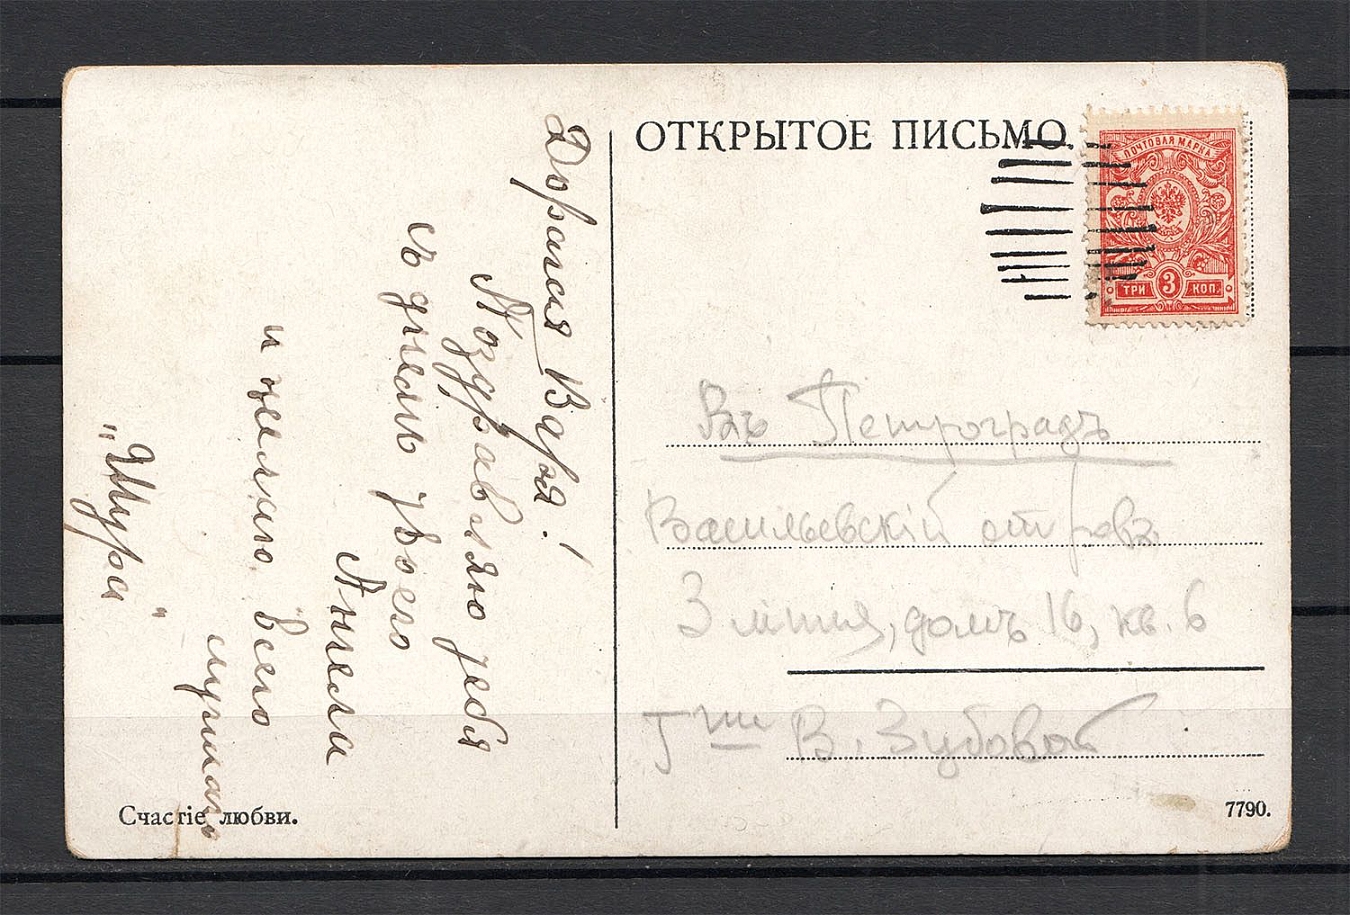 ОТКРЫТОЕ ПИСЬМО.
ПОЧТОВАЯ МАРКА
ТРИ 3 КОП.
Дорогая Варя!
Поздравляю тебя
съ днемъ твоего
Ангела
и желаю всего
лучшаго
„Шура"
Въ Петроградъ
Васильевскій островъ
3 линия, домъ 16, кв. 6
Г-жѣ В. Зубовой
Счастіе любви.
7790.